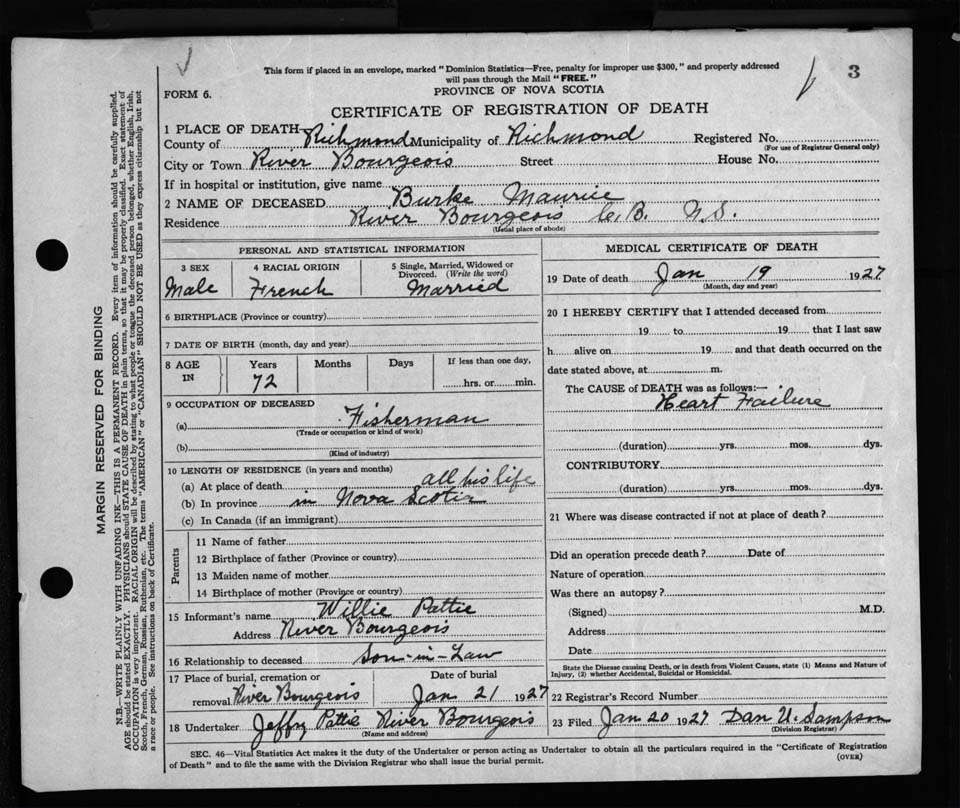 This form if placed in an envelope, marked "Dominion Statistics—Free, penalty for improper use $300," and properly addressed
will pass through the Mail "FREE."
3
FORM 6.
PROVINCE OF NOVA SCOTIA
CERTIFICATE OF REGISTRATION OF DEATH
1 PLACE OF DEATH—
County of Richmond Municipality of Richmond Registered No.
(For use of Registrar General only)
City or Town River Bourgeois Street House No.
If in hospital or institution, give name
2 NAME OF DECEASED Burke Maurice
Residence River Bourgeois C.B. N.S.
(Usual place of abode)
PERSONAL AND STATISTICAL INFORMATION
3 SEX 4 RACIAL ORIGIN 5 Single, Married, Widowed or Divorced. (Write the word)
Male French Married
6 BIRTHPLACE (Province or country)
7 DATE OF BIRTH (month, day and year)
8 AGE IN Years Months Days If less than one day,
72 hrs. or min.
9 OCCUPATION OF DECEASED
(a) Fisherman
(Trade or occupation or kind of work)
(b)
(Kind of industry)
10 LENGTH OF RESIDENCE (in years and months)
(a) At place of death all his life
(b) In province in Nova Scotia
(c) In Canada (if an immigrant)
Parents
11 Name of father
12 Birthplace of father (Province or country)
13 Maiden name of mother
14 Birthplace of mother (Province or country)
15 Informant's name Willie Pattie
Address River Bourgeois
16 Relationship to deceased Son-in-Law
17 Place of burial, cremation or Date of burial
removal River Bourgeois Jan 21 1927
18 Undertaker Jeffry Pattie River Bourgeois
(Name and address)
MEDICAL CERTIFICATE OF DEATH
19 Date of death Jan 19 1927
(Month, day and year)
20 I HEREBY CERTIFY that I attended deceased from
19 to 19 that I last saw
h alive on 19 and that death occurred on the
date stated above, at m.
The CAUSE of DEATH was as follows:—
Heart Failure
(duration) yrs. mos. dys.
CONTRIBUTORY
(duration) yrs. mos. dys.
21 Where was disease contracted if not at place of death?
Did an operation precede death? Date of
Nature of operation
Was there an autopsy?
(Signed) M.D.
Address
Date
State the Disease causing Death, or in death from Violent Causes, state (1) Means and Nature of
Injury, (2) whether Accidental, Suicidal or Homicidal.
22 Registrar's Record Number
23 Filed Jan 20 1927 Dan U. Sampson
(Division Registrar)
SEC. 46—Vital Statistics Act makes it the duty of the Undertaker or person acting as Undertaker to obtain all the particulars required in the "Certificate of Registration
of Death" and to file the same with the Division Registrar who shall issue the burial permit.
(OVER)
MARGIN RESERVED FOR BINDING
N.B.—WRITE PLAINLY WITH UNFADING INK—THIS IS A PERMANENT RECORD. Every item of information should be carefully supplied.
AGE should be stated EXACTLY. PHYSICIANS should STATE CAUSE OF DEATH in plain terms, so that it may be properly classified. Exact statement of
OCCUPATION is very important. RACIAL ORIGIN will be described by stating to what people or tongue the deceased person belonged, whether English, Irish,
Scotch, French, German, Russian, Ruthenian, etc. The terms "AMERICAN" or "CANADIAN" SHOULD NOT BE USED as they express citizenship but not
a race or people. See instructions on back of Certificate.